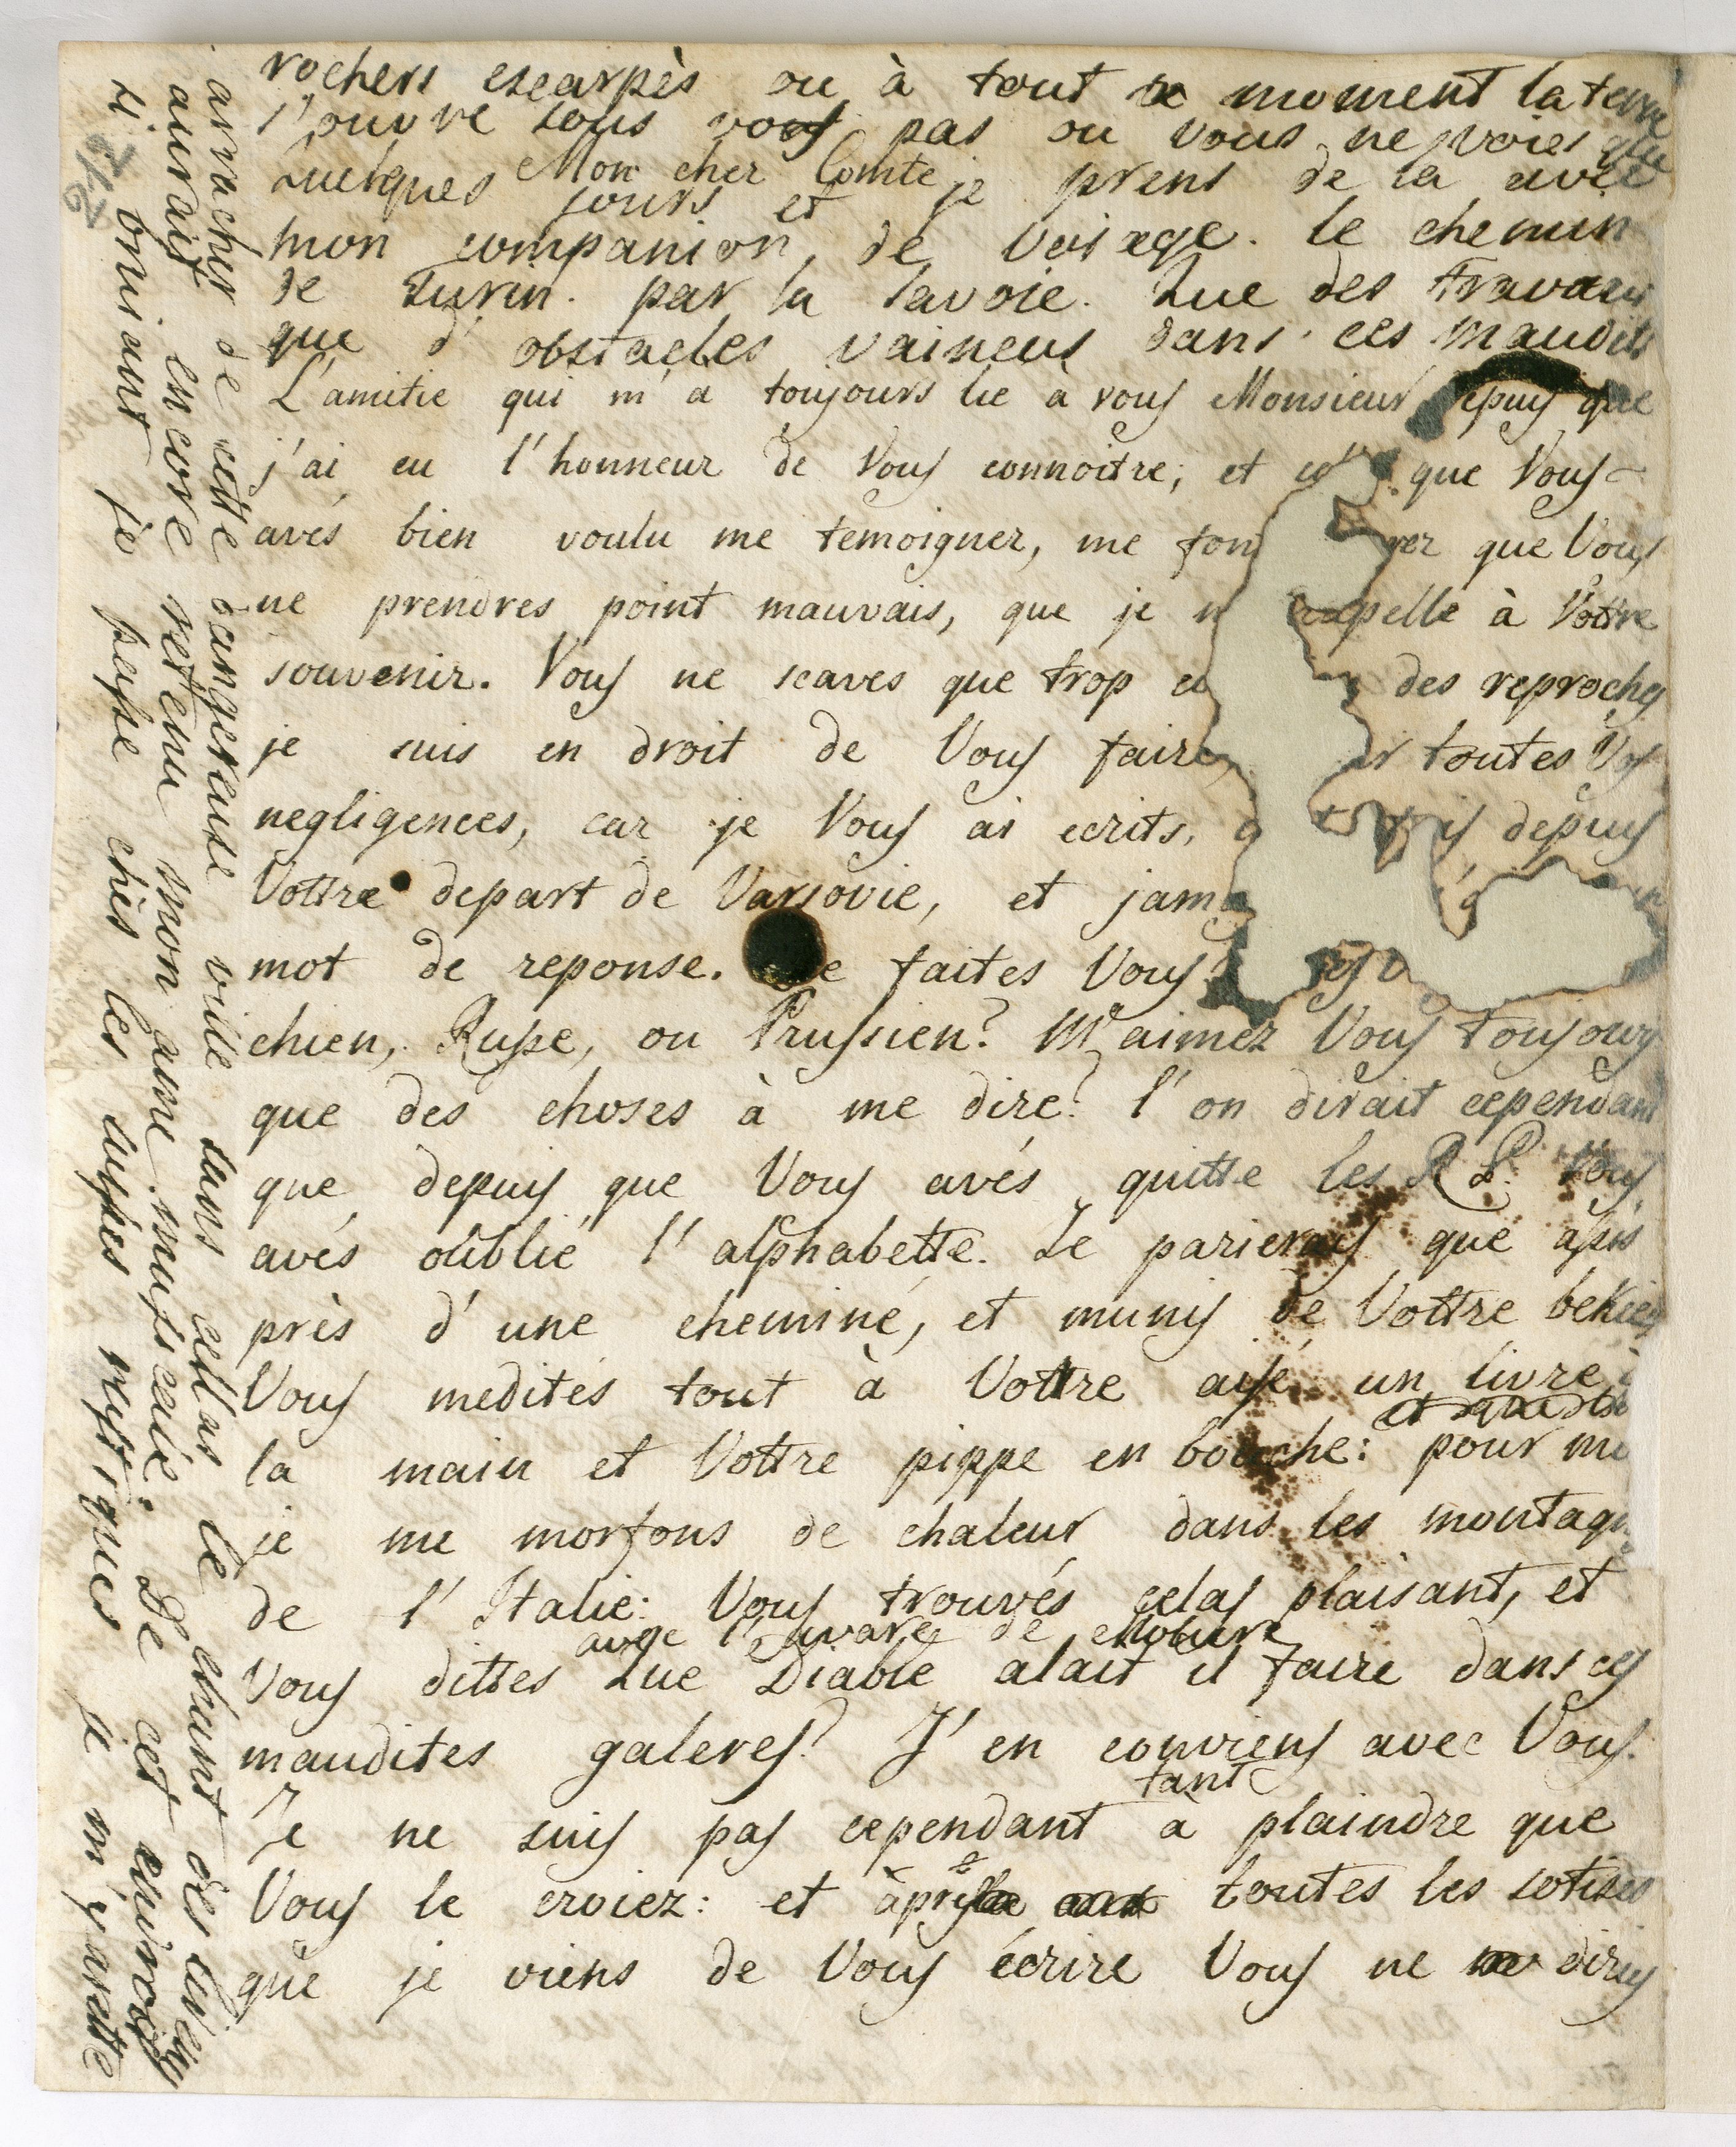 rochers escarpès ou à tout moment la terre
s'ouvre sous vos pas ou vous ne voies que
Mon cher Comte
quelques jours et je prens de la avec
mon companion, de Voiage. le chemin
de Turin. par la Savoie. Que des travaux
que d'obstacles vaincus dans ces maudits
L'amitie qui m'a toujours lie a vous Monsieur epuis que
j'ai eu l'honneur de Vous connoitre; et que Vous
avés bien voulu me temoigner, me font rer que Vous
ne prendres point mauvais, que je rapelle à Vottre
souvenir. Vous ne scaves que trop des reproches
je suis en droit de Vous faire, toutes Vos
negligences, car je Vous ai ecrits, depuis
Vottre depart de Varsovie, et jam
mot de reponse. e faites Vous
chien, Russe, ou Prussien? M'aimez Vous toujours
que des choses à me dire? l'on dirait cependant
que depuis que Vous avés quitte les R P. Vous
avés oublié l'alphabette. Je parierais que assis
près d'une cheminé, et munis de Vottre bekies
Vous medités tout à Vottre aise, un livre
la main et Vottre pippe en bouche: pour m
je me morfons de chaleur dans les montagn
de l'Italie: Vous trouvés celas plaisant, et
avec l'Avare de Moliere
Vous dittes Que Diable alait il faire dans ces
maudites galeres? J'en conviens avec Vous.
tant
Je ne suis pas cependant a plaindre que
Vous le croiez: et àprès toutes les sotises
que je viens de Vous écrire Vous ne diries
arracher de cette dangereuse ville sans cellas le chant des
aurait encore rettenu mon ame musicale. De cet
si bruiant je passe chès les Suisses rustiques je m'y arrette
212